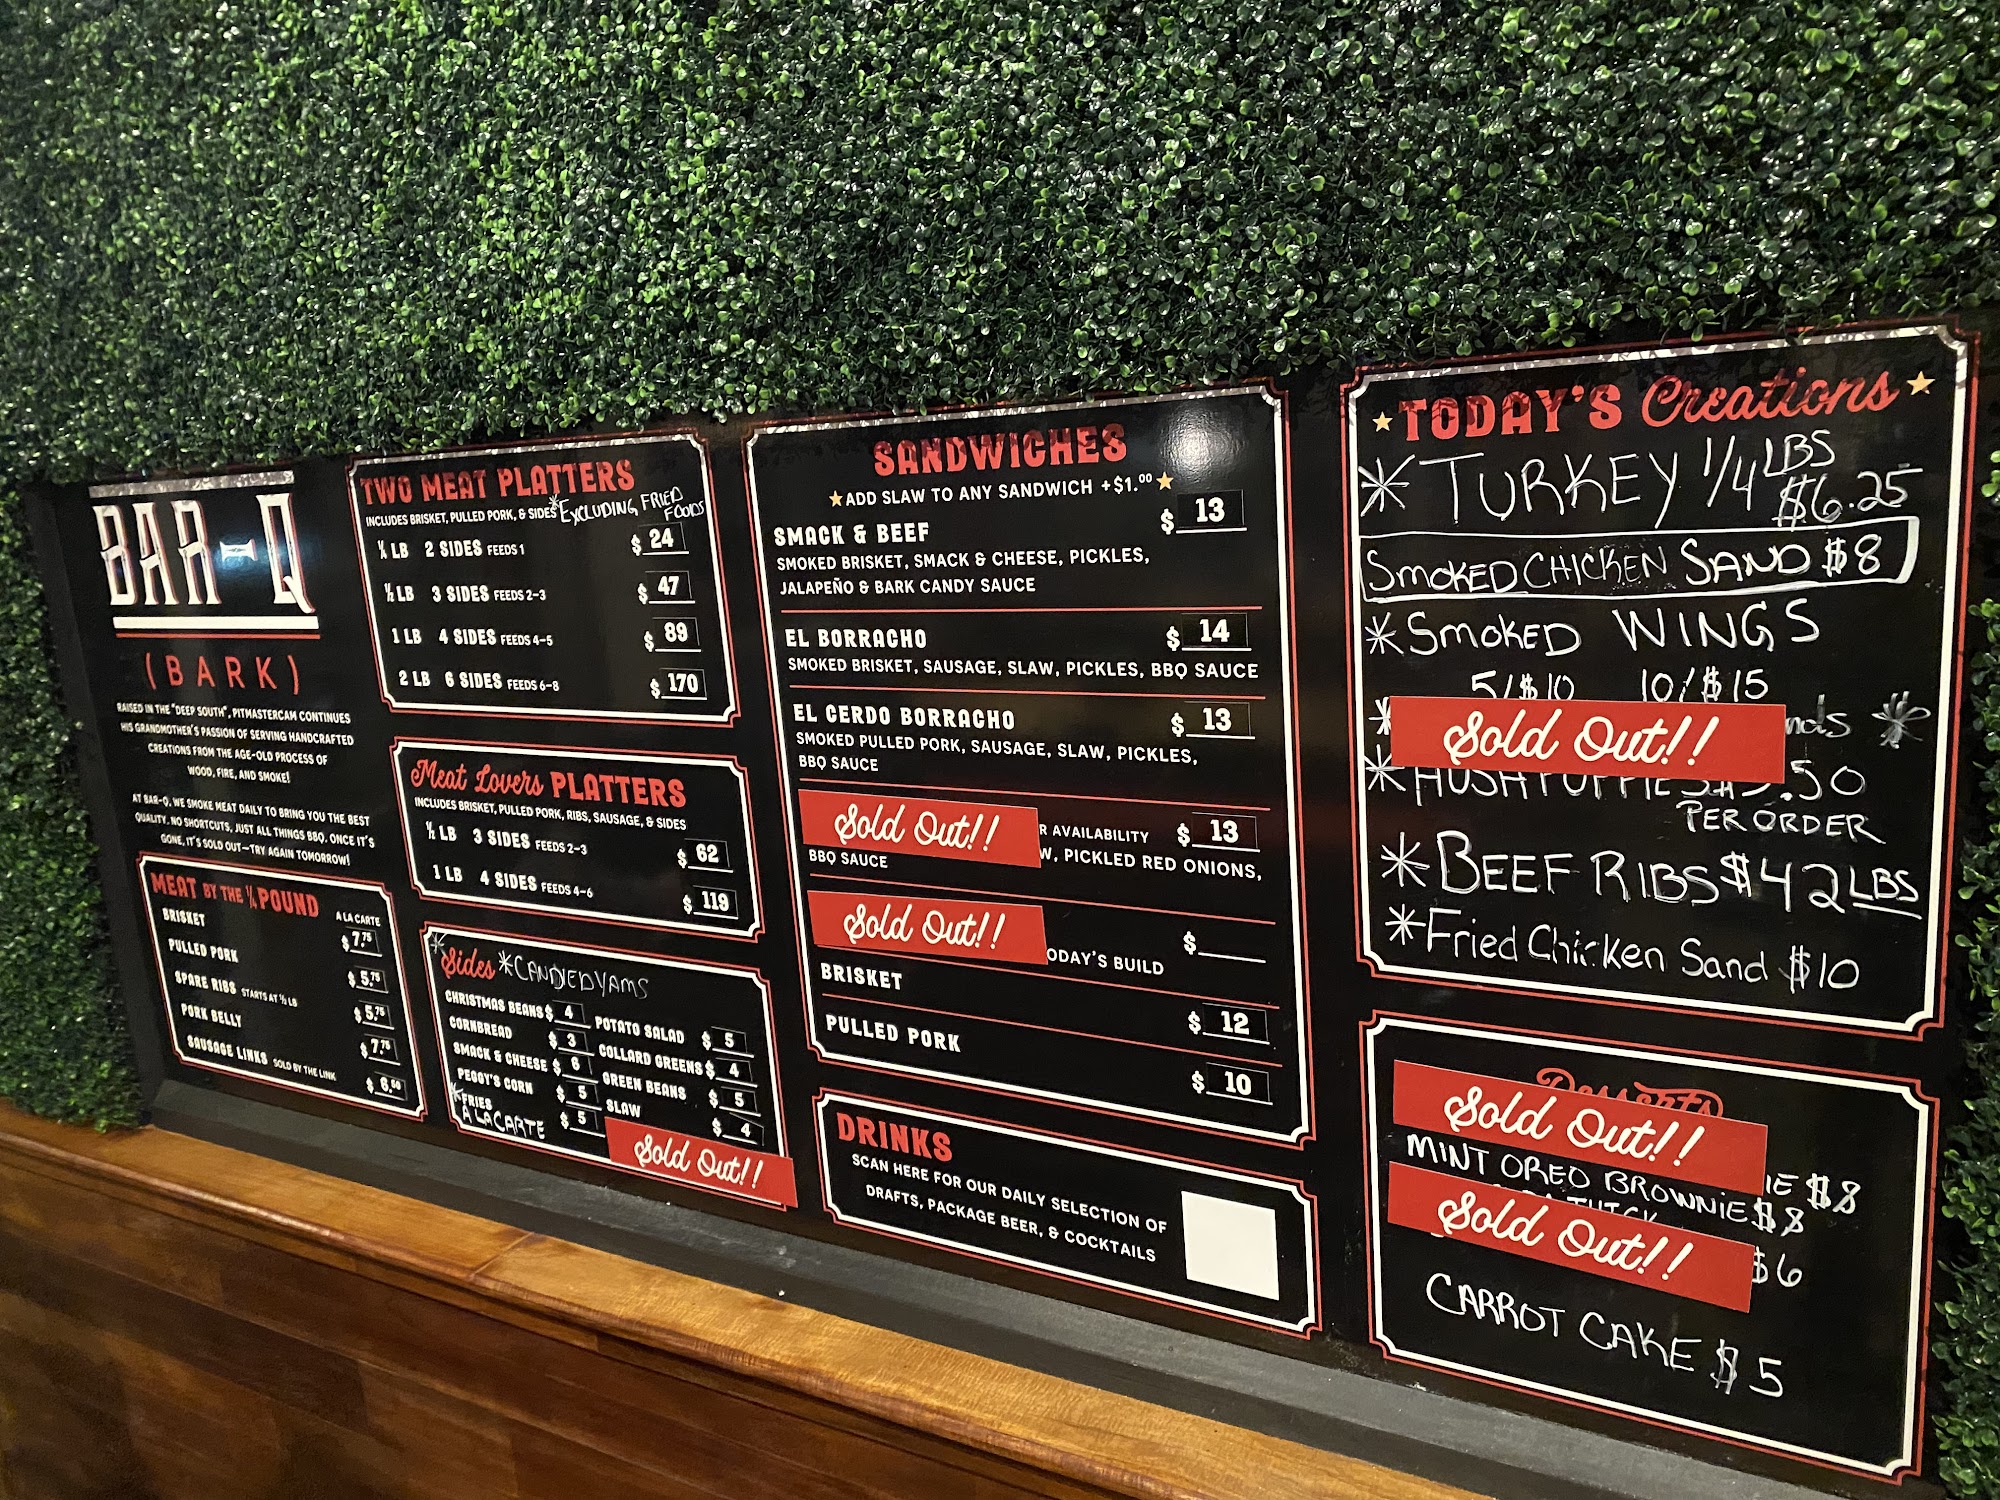 BAR-Q
(BARK)
RAISED IN THE "DEEP SOUTH", PITMASTERCAM CONTINUES
HIS GRANDMOTHER'S PASSION OF SERVING HANDCRAFTED
CREATIONS FROM THE AGE-OLD PROCESS OF
WOOD, FIRE, AND SMOKE!
AT BAR-Q, WE SMOKE MEAT DAILY TO BRING YOU THE BEST
QUALITY. NO SHORTCUTS, JUST ALL THINGS BBQ. ONCE IT'S
GONE, IT'S SOLD OUT—TRY AGAIN TOMORROW!
MEAT BY THE ¼ POUND
A LA CARTE
BRISKET $ 7.75
PULLED PORK $ 5.75
SPARE RIBS STARTS AT ½ LB $ 5.75
PORK BELLY $ 7.75
SAUSAGE LINKS SOLD BY THE LINK $ 6.50
TWO MEAT PLATTERS
INCLUDES BRISKET, PULLED PORK, & SIDES *EXCLUDING FRIED FOODS
¼ LB 2 SIDES FEEDS 1 $ 24
½ LB 3 SIDES FEEDS 2-3 $ 47
1 LB 4 SIDES FEEDS 4-5 $ 89
2 LB 6 SIDES FEEDS 6-8 $ 170
Meat Lovers PLATTERS
INCLUDES BRISKET, PULLED PORK, RIBS, SAUSAGE, & SIDES
½ LB 3 SIDES FEEDS 2-3 $ 62
1 LB 4 SIDES FEEDS 4-6 $ 119
*Sides *CANDIED YAMS
CHRISTMAS BEANS $ 4
CORNBREAD $ 3
SMACK & CHEESE $ 6
PEGGY'S CORN $ 5
*FRIES $ 5
A LA CARTE
POTATO SALAD $ 5
COLLARD GREENS $ 4
GREEN BEANS $ 5
SLAW $ 4
Sold Out!!
SANDWICHES
★ADD SLAW TO ANY SANDWICH +$1.00★
SMACK & BEEF $ 13
SMOKED BRISKET, SMACK & CHEESE, PICKLES,
JALAPEÑO & BARK CANDY SAUCE
EL BORRACHO $ 14
SMOKED BRISKET, SAUSAGE, SLAW, PICKLES, BBQ SAUCE
EL CERDO BORRACHO $ 13
SMOKED PULLED PORK, SAUSAGE, SLAW, PICKLES,
BBQ SAUCE
Sold Out!! R AVAILABILITY $ 13
W, PICKLED RED ONIONS,
BBQ SAUCE
Sold Out!! ODAY'S BUILD $
BRISKET $ 12
PULLED PORK $ 10
DRINKS
SCAN HERE FOR OUR DAILY SELECTION OF
DRAFTS, PACKAGE BEER, & COCKTAILS
★TODAY'S Creations★
* TURKEY 1/4 LBS
$6.25
SMOKED CHICKEN SAND $8
* SMOKED WINGS
5/$10 10/$15
* Sold Out!! nds *
* HUSHPUPPIES .50
PER ORDER
* BEEF RIBS $42 LBS
* Fried Chicken Sand $10
Desserts
Sold Out!! IE $8
MINT OREO BROWNIE $8
Sold Out!! $6
CARROT CAKE $5